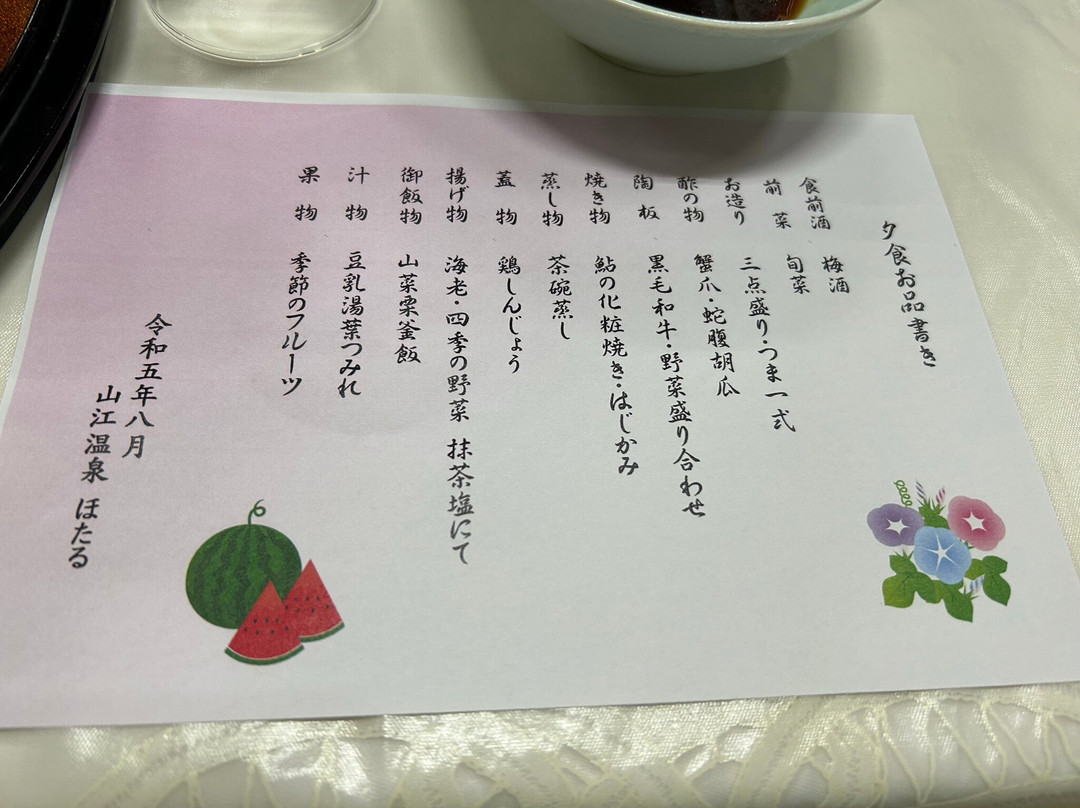 夕食お品書き
食前酒 梅酒
前菜 旬菜
お造り 三点盛り・つま一式
酢の物 蟹爪・蛇腹胡瓜
陶板 黒毛和牛・野菜盛り合わせ
焼き物 鮎の化粧焼き・はじかみ
蒸し物 茶碗蒸し
蓋物 鶏しんじょう
揚げ物 海老・四季の野菜 抹茶塩にて
御飯物 山菜栗釜飯
汁物 豆乳湯葉つみれ
果物 季節のフルーツ
令和五年八月
山江温泉 ほたる